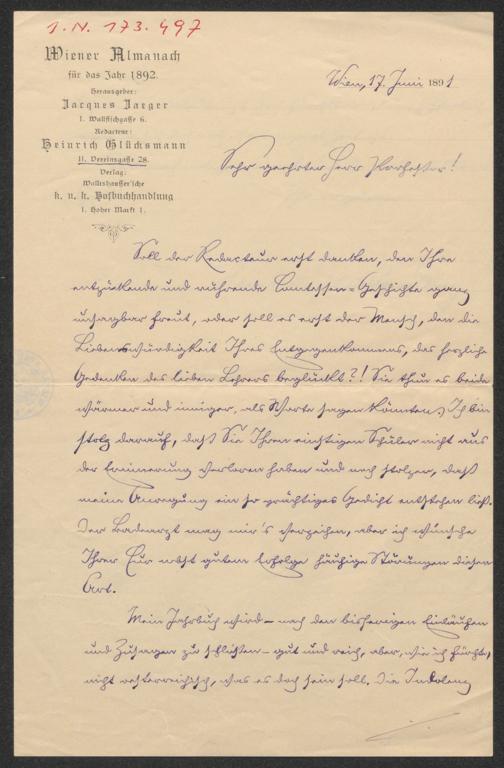 I.N. 173.497
Wiener Almanach
für das Jahr 1892.
Herausgeber:
Jacques Jaeger
I. Wallfischgasse 6.
Redacteur:
Heinrich Glücksmann
II. Vereinsgasse 28.
Verlag:
Wallishausser'sche
k. u. k. Hofbuchhandlung
I. Hoher Markt 1.
Wien, 17. Juni 1891
Sehr geehrter Herr
Soll der Redacteur erst danken, den Ihre
entzückende und rührende Comtessen-Geschichte ganz
unsagbar freut, oder soll es erst der Mensch, den die
Liebenswürdigkeit Ihres Entgegenkommens, das herzliche
Gedenken des lieben Lehrers beglückt?! Sie thun es beide
wärmer und inniger, als Worte sagen könnten. Ich bin
stolz darauf, daß Sie Ihren einstigen Schüler nicht aus
der Erinnerung verloren haben und noch stolzer, daß
meine Anregung ein so prächtiges Gedicht entstehen ließ.
Der Badearzt mag mir's verzeihen, aber ich wünsche
Ihrer Cur nebst gutem Erfolge häufige Störungen dieser
Art.
Mein Jahrbuch wird – nach den bisherigen Einläufen
und Zusagen zu schließen – gut und reich, aber, wie ich fürchte,
nicht oesterreichisch, was es doch sein soll. Die Indolenz